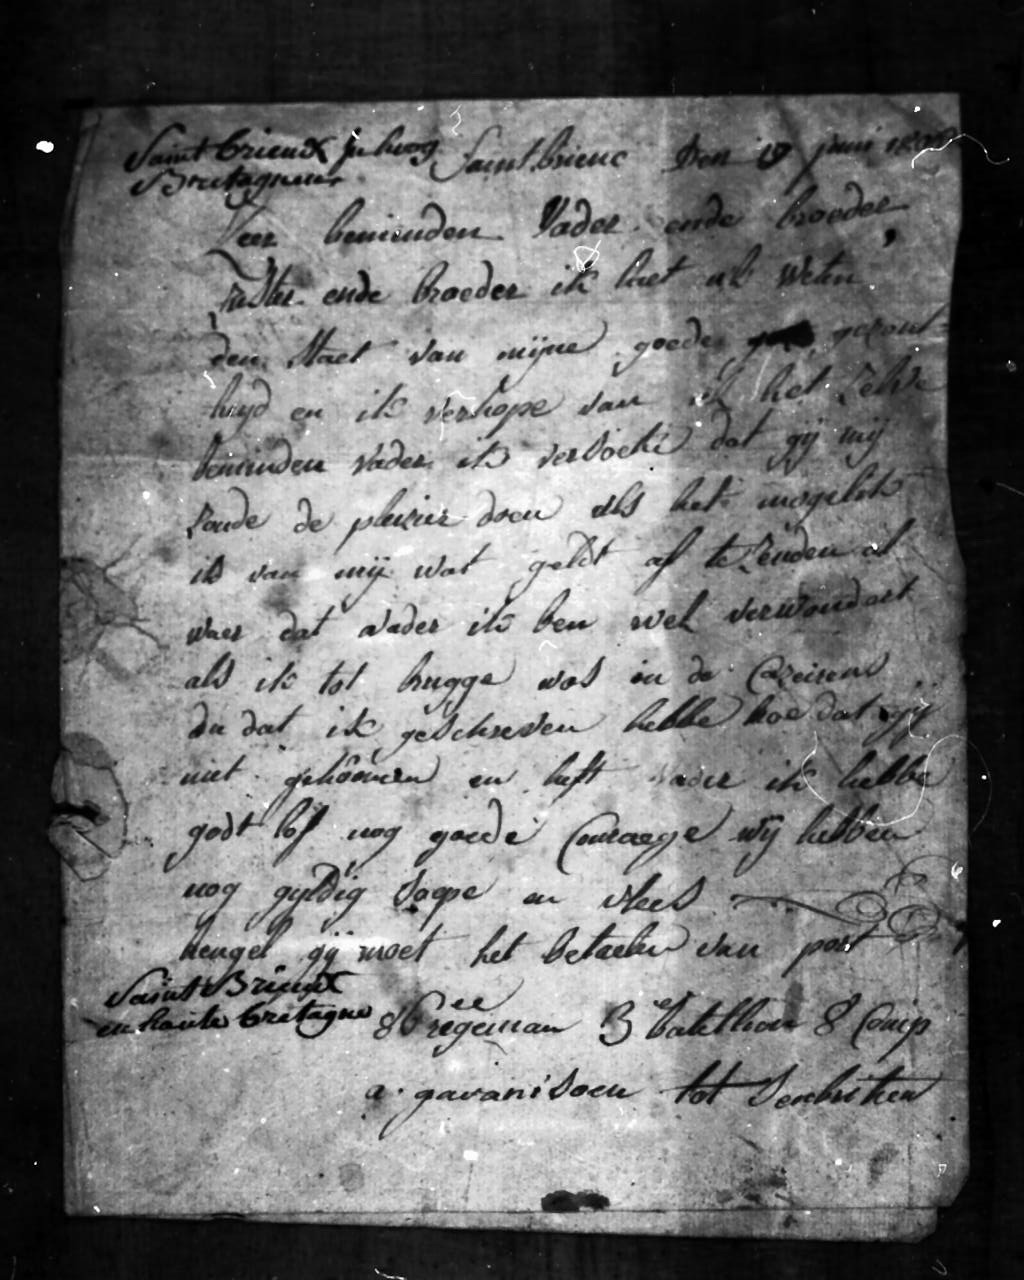 Saint brieux in hoog Saint brieuc Den 19 juni
Bretagneux
Zeer beminden Vader ende broeder
suster ende broeder ik laet uk weten
den staet van mijne goede gesont
huyd en ik verhope van uk het selve
beminden vader ik versoeke dat gij mij
soude de plusier doen als het mogelik
is van mij wat geldt af te senden al
waer dat vader ik ben wel verwondert
als ik tot brugge was in de
du dat ik geschreven hebbe hoe dat gij
niet gekommen en heft vader ik hebbe
godt lof nog goede Couraege wij hebben
nog gyldig soepe en vlees
hengel gij moet het betaelen van port
Saint Brieux
en haute bretagne 86 regeman 3 batellion 8 Comp
a gavanisoen tot Senbritien